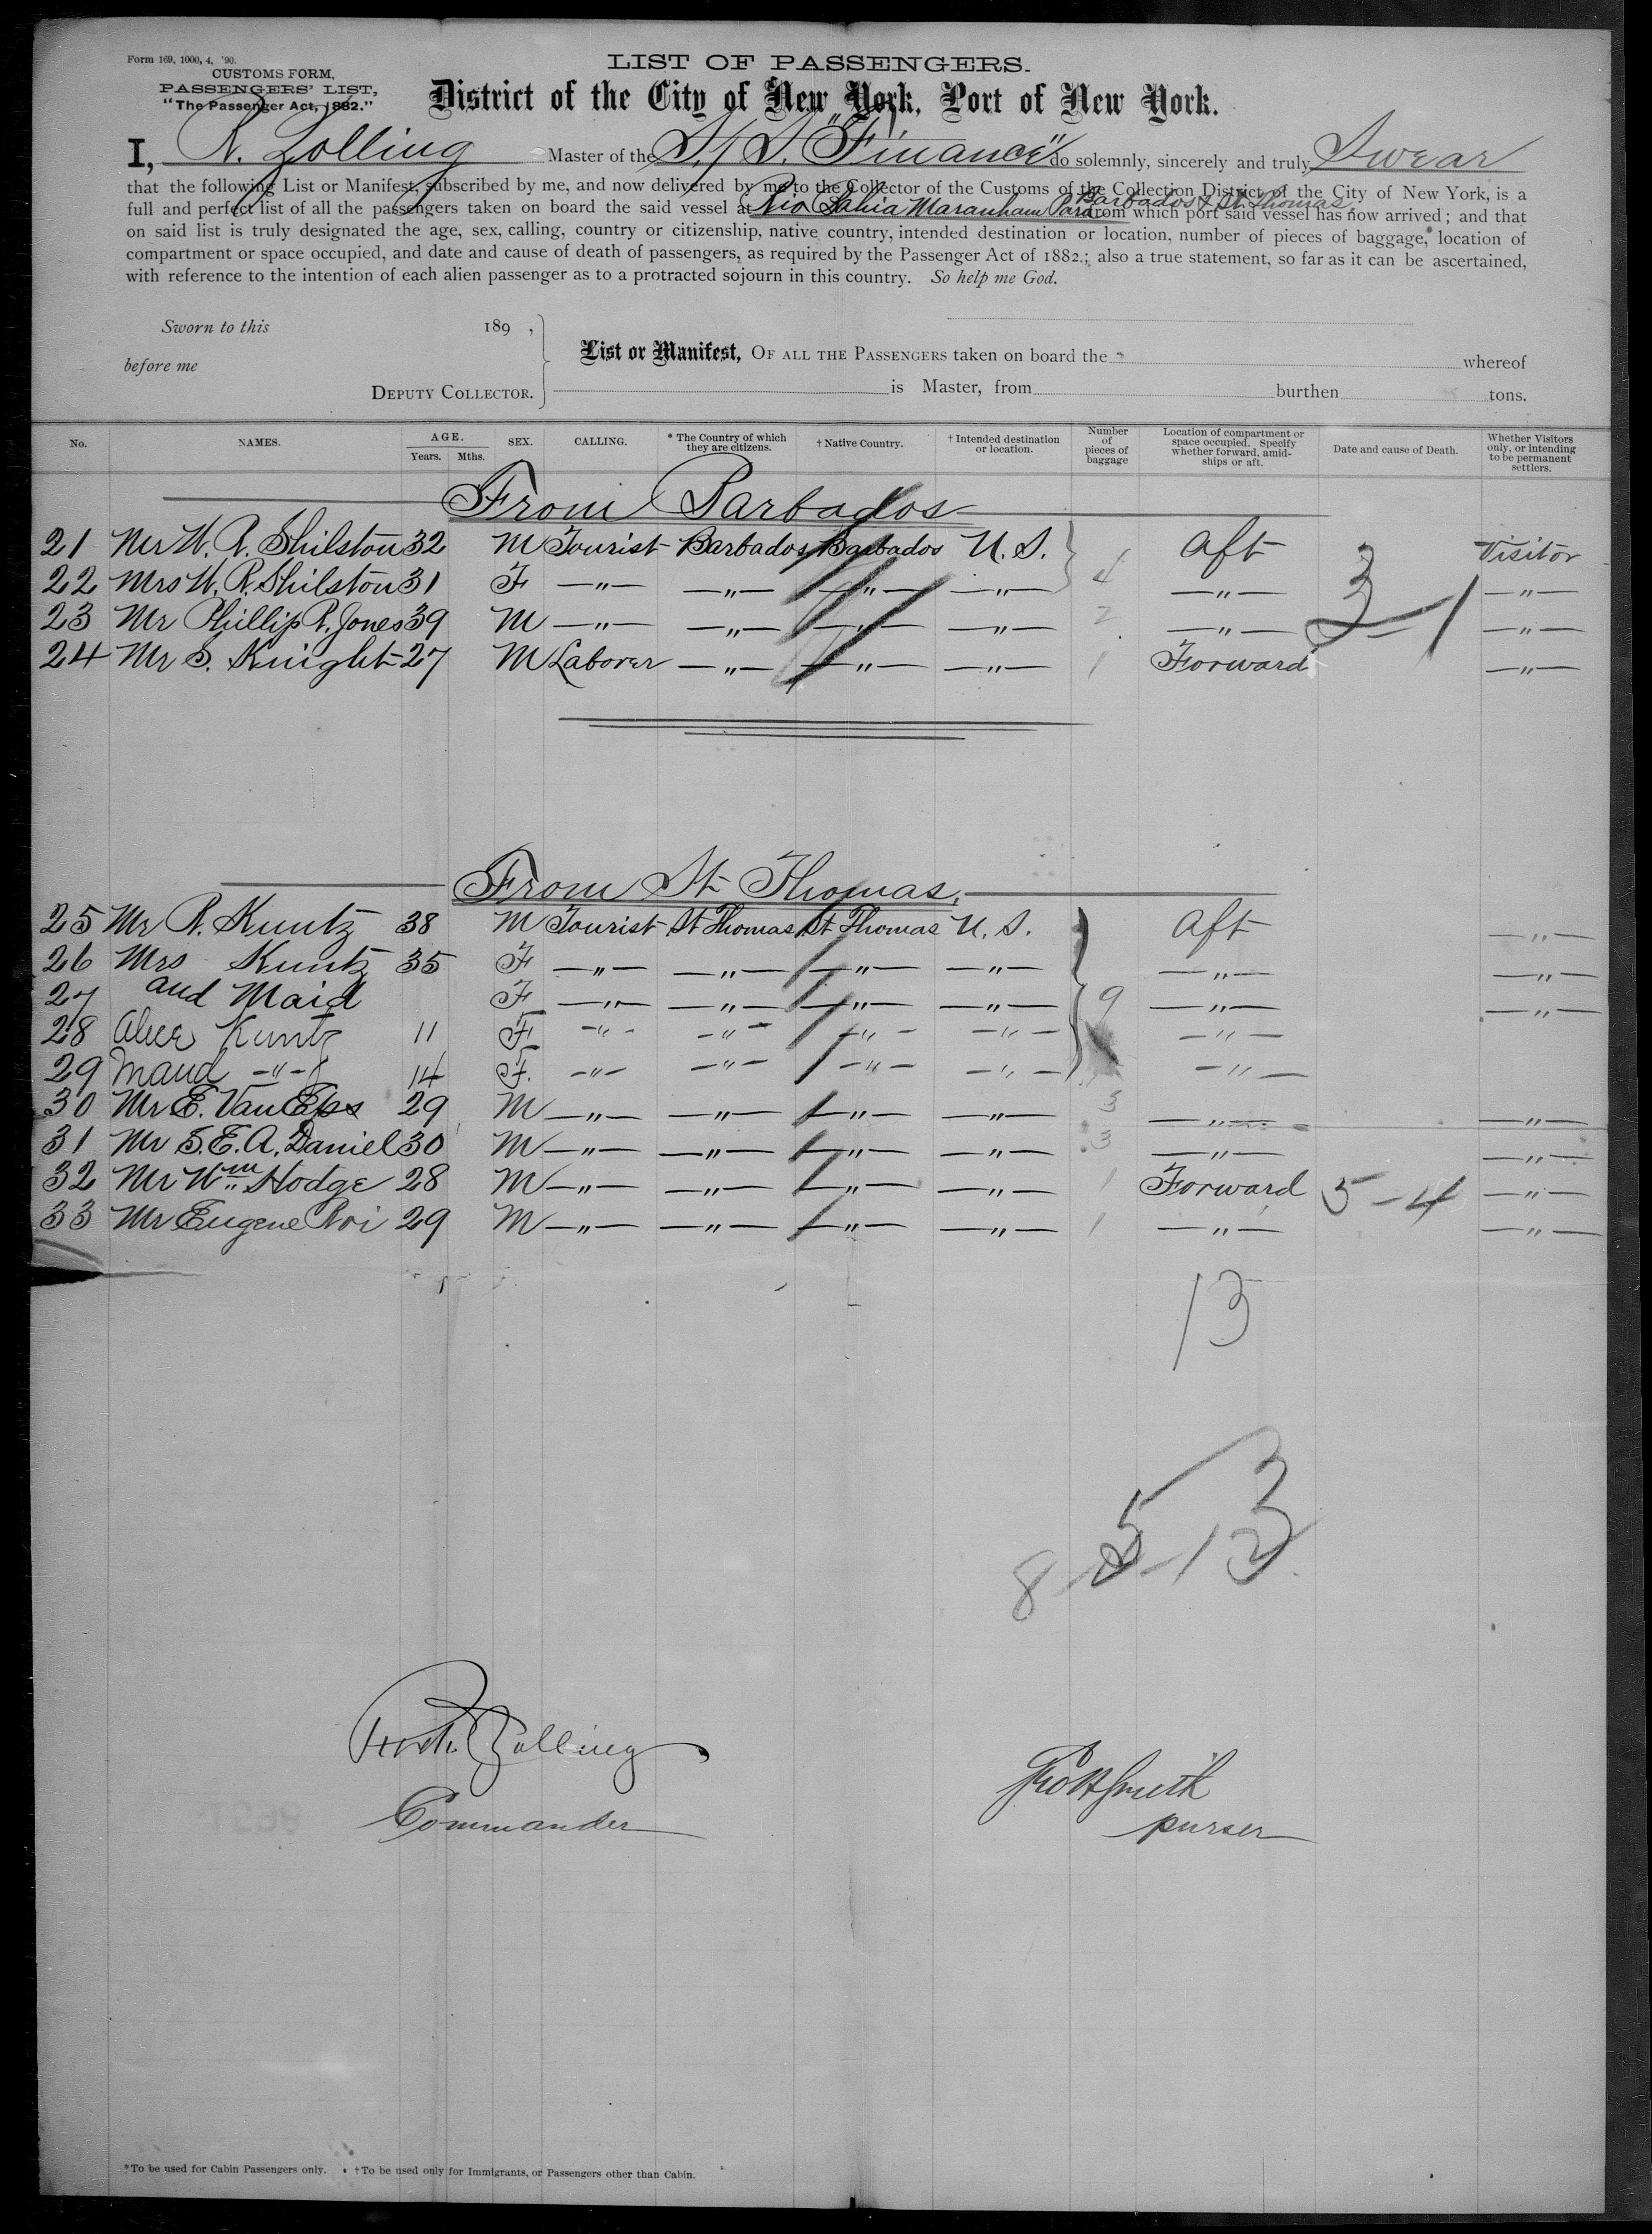 Form 169, 1000, 4, '90.
CUSTOMS FORM,
PASSENGERS' LIST,
"The Passenger Act, 1882."
LIST OF PASSENGERS.
District of the City of New York, Port of New York.
I, R. Zolling Master of the S/S. "Finance" do solemnly, sincerely and truly Swear
that the following List or Manifest, subscribed by me, and now delivered by me to the Collector of the Customs of the Collection District of the City of New York, is a
Barbados & St. Thomas
full and perfect list of all the passengers taken on board the said vessel at Rio Bahia Maranham Para from which port said vessel has now arrived; and that
on said list is truly designated the age, sex, calling, country or citizenship, native country, intended destination or location, number of pieces of baggage, location of
compartment or space occupied, and date and cause of death of passengers, as required by the Passenger Act of 1882.; also a true statement, so far as it can be ascertained,
with reference to the intention of each alien passenger as to a protracted sojourn in this country. So help me God.
Sworn to this 189 ,
before me
DEPUTY COLLECTOR.
List or Manifest, OF ALL THE PASSENGERS taken on board the whereof
is Master, from burthen tons.
No. NAMES. AGE. Years. Mths. SEX. CALLING. * The Country of which they are citizens. † Native Country. † Intended destination or location. Number of pieces of baggage Location of compartment or space occupied. Specify whether forward, amidships or aft. Date and cause of Death. Whether Visitors only, or intending to be permanent settlers.
From Barbados
21 Mr W. R. Shilston 32 M Tourist Barbados Barbados U. S. Aft Visitor
22 Mrs W. R. Shilston 31 F —"— —"— —"— —"— 4 —"— —"—
23 Mr Phillip R. Jones 39 M —"— —"— —"— —"— 2 —"— 3–1 —"—
24 Mr S. Knight 27 M Laborer —"— —"— —"— 1 Forward —"—
From St Thomas.
25 Mr R. Kuntz 38 M Tourist St Thomas St Thomas U. S. Aft —"—
26 Mrs Kuntz 35 F —"— —"— —"— —"— —"— —"—
27 and Maid F —"— —"— —"— —"— 9 —"— —"—
28 Alice Kuntz 11 F —"— —"— —"— —"— —"—
29 Maud —"— 14 F. —"— —"— —"— —"— —"—
30 Mr E. Van Eps 29 M —"— —"— —"— —"— 3 —"— —"—
31 Mr S. E. A. Daniel 30 M —"— —"— —"— —"— 3 —"— —"—
32 Mr Wm Hodge 28 M —"— —"— —"— —"— 1 Forward 5–4 —"—
33 Mr Eugene Roi 29 M —"— —"— —"— —"— 1 —"— —"—
13
Zolling
Commander
Smith
purser
*To be used for Cabin Passengers only. †To be used only for Immigrants, or Passengers other than Cabin.